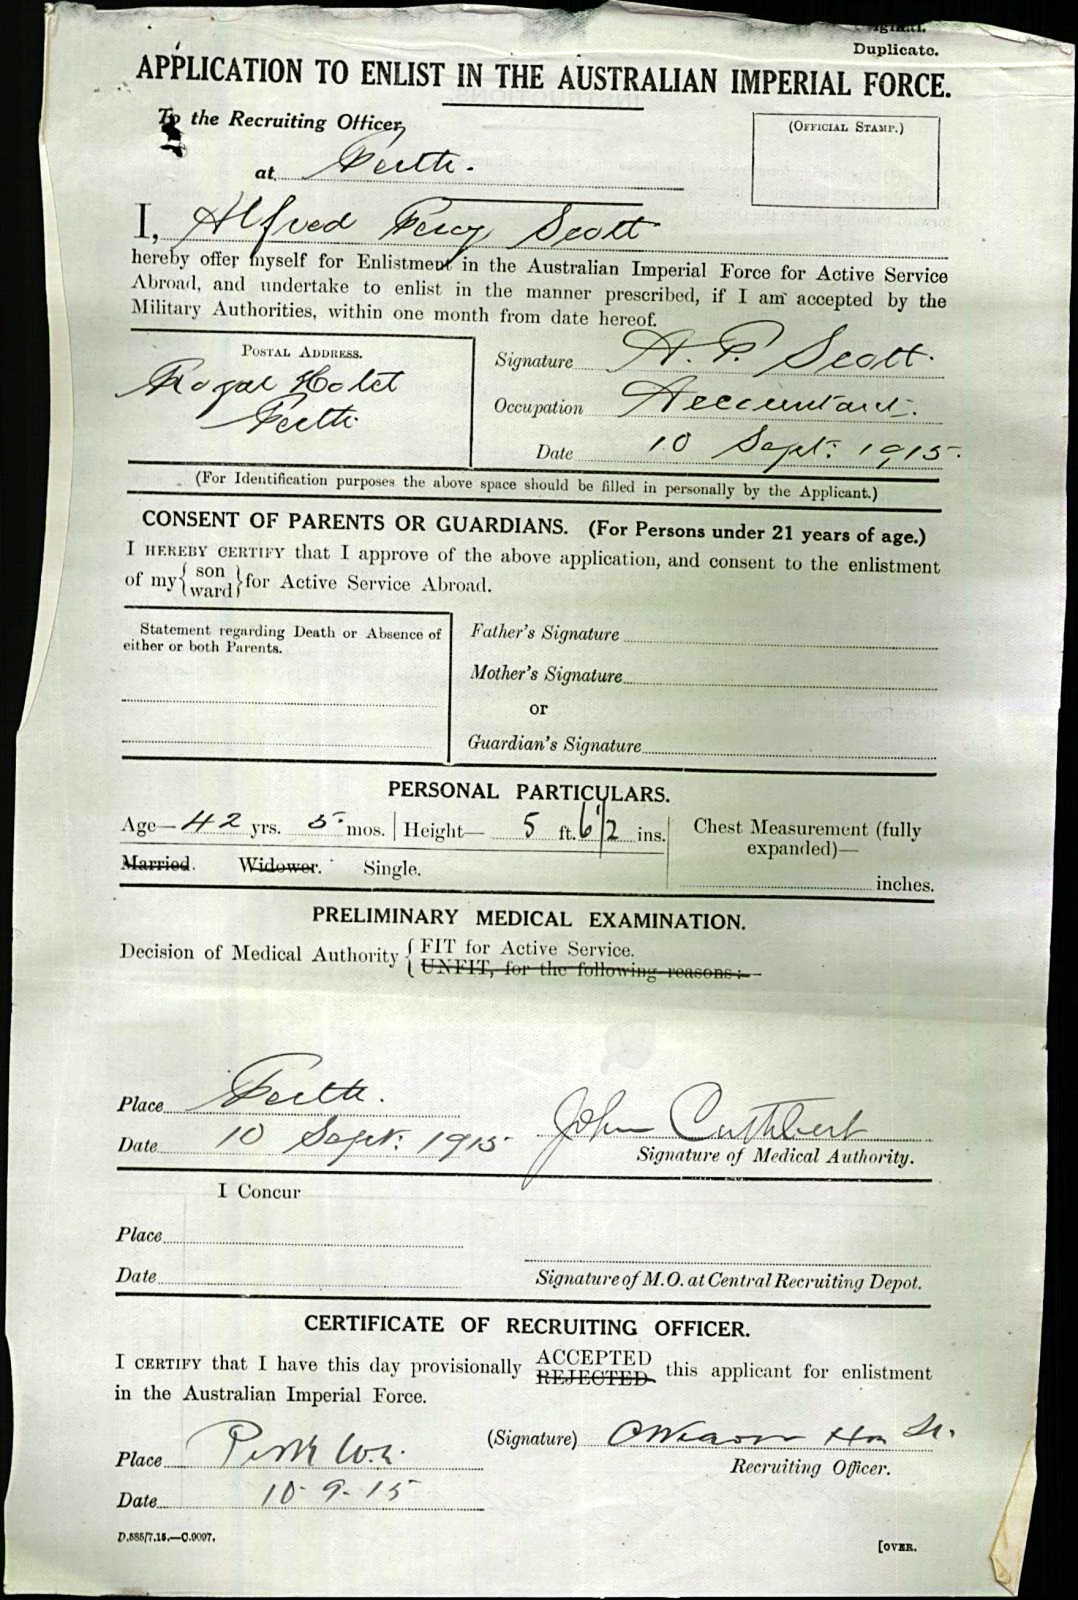 Duplicate.
APPLICATION TO ENLIST IN THE AUSTRALIAN IMPERIAL FORCE.
To the Recruiting Officer,
(OFFICIAL STAMP.)
at Perth.
I, Alfred Percy Scott
hereby offer myself for Enlistment in the Australian Imperial Force for Active Service
Abroad, and undertake to enlist in the manner prescribed, if I am accepted by the
Military Authorities, within one month from date hereof.
POSTAL ADDRESS.
Royal Hotel
Perth
Signature A. P. Scott.
Occupation Accountant.
Date 10 Sept: 1915.
(For Identification purposes the above space should be filled in personally by the Applicant.)
CONSENT OF PARENTS OR GUARDIANS. (For Persons under 21 years of age.)
I HEREBY CERTIFY that I approve of the above application, and consent to the enlistment
of my { son ward } for Active Service Abroad.
Statement regarding Death or Absence of
either or both Parents.
Father's Signature
Mother's Signature
or
Guardian's Signature
PERSONAL PARTICULARS.
Age— 42 yrs. 5 mos. Height— 5 ft. 6 1/2 ins.
Chest Measurement (fully
expanded)—
inches.
Married. Widower. Single.
PRELIMINARY MEDICAL EXAMINATION.
Decision of Medical Authority { FIT for Active Service.
UNFIT, for the following reasons:—
Place Perth.
Date 10 Sept: 1915
John Cuthbert
Signature of Medical Authority.
I Concur
Place
Date
Signature of M.O. at Central Recruiting Depot.
CERTIFICATE OF RECRUITING OFFICER.
I CERTIFY that I have this day provisionally ACCEPTED REJECTED this applicant for enlistment
in the Australian Imperial Force.
(Signature)
Place Perth W.A.
Recruiting Officer.
Date 10-9-15
D.585/7.15.—C.9097.
[OVER.